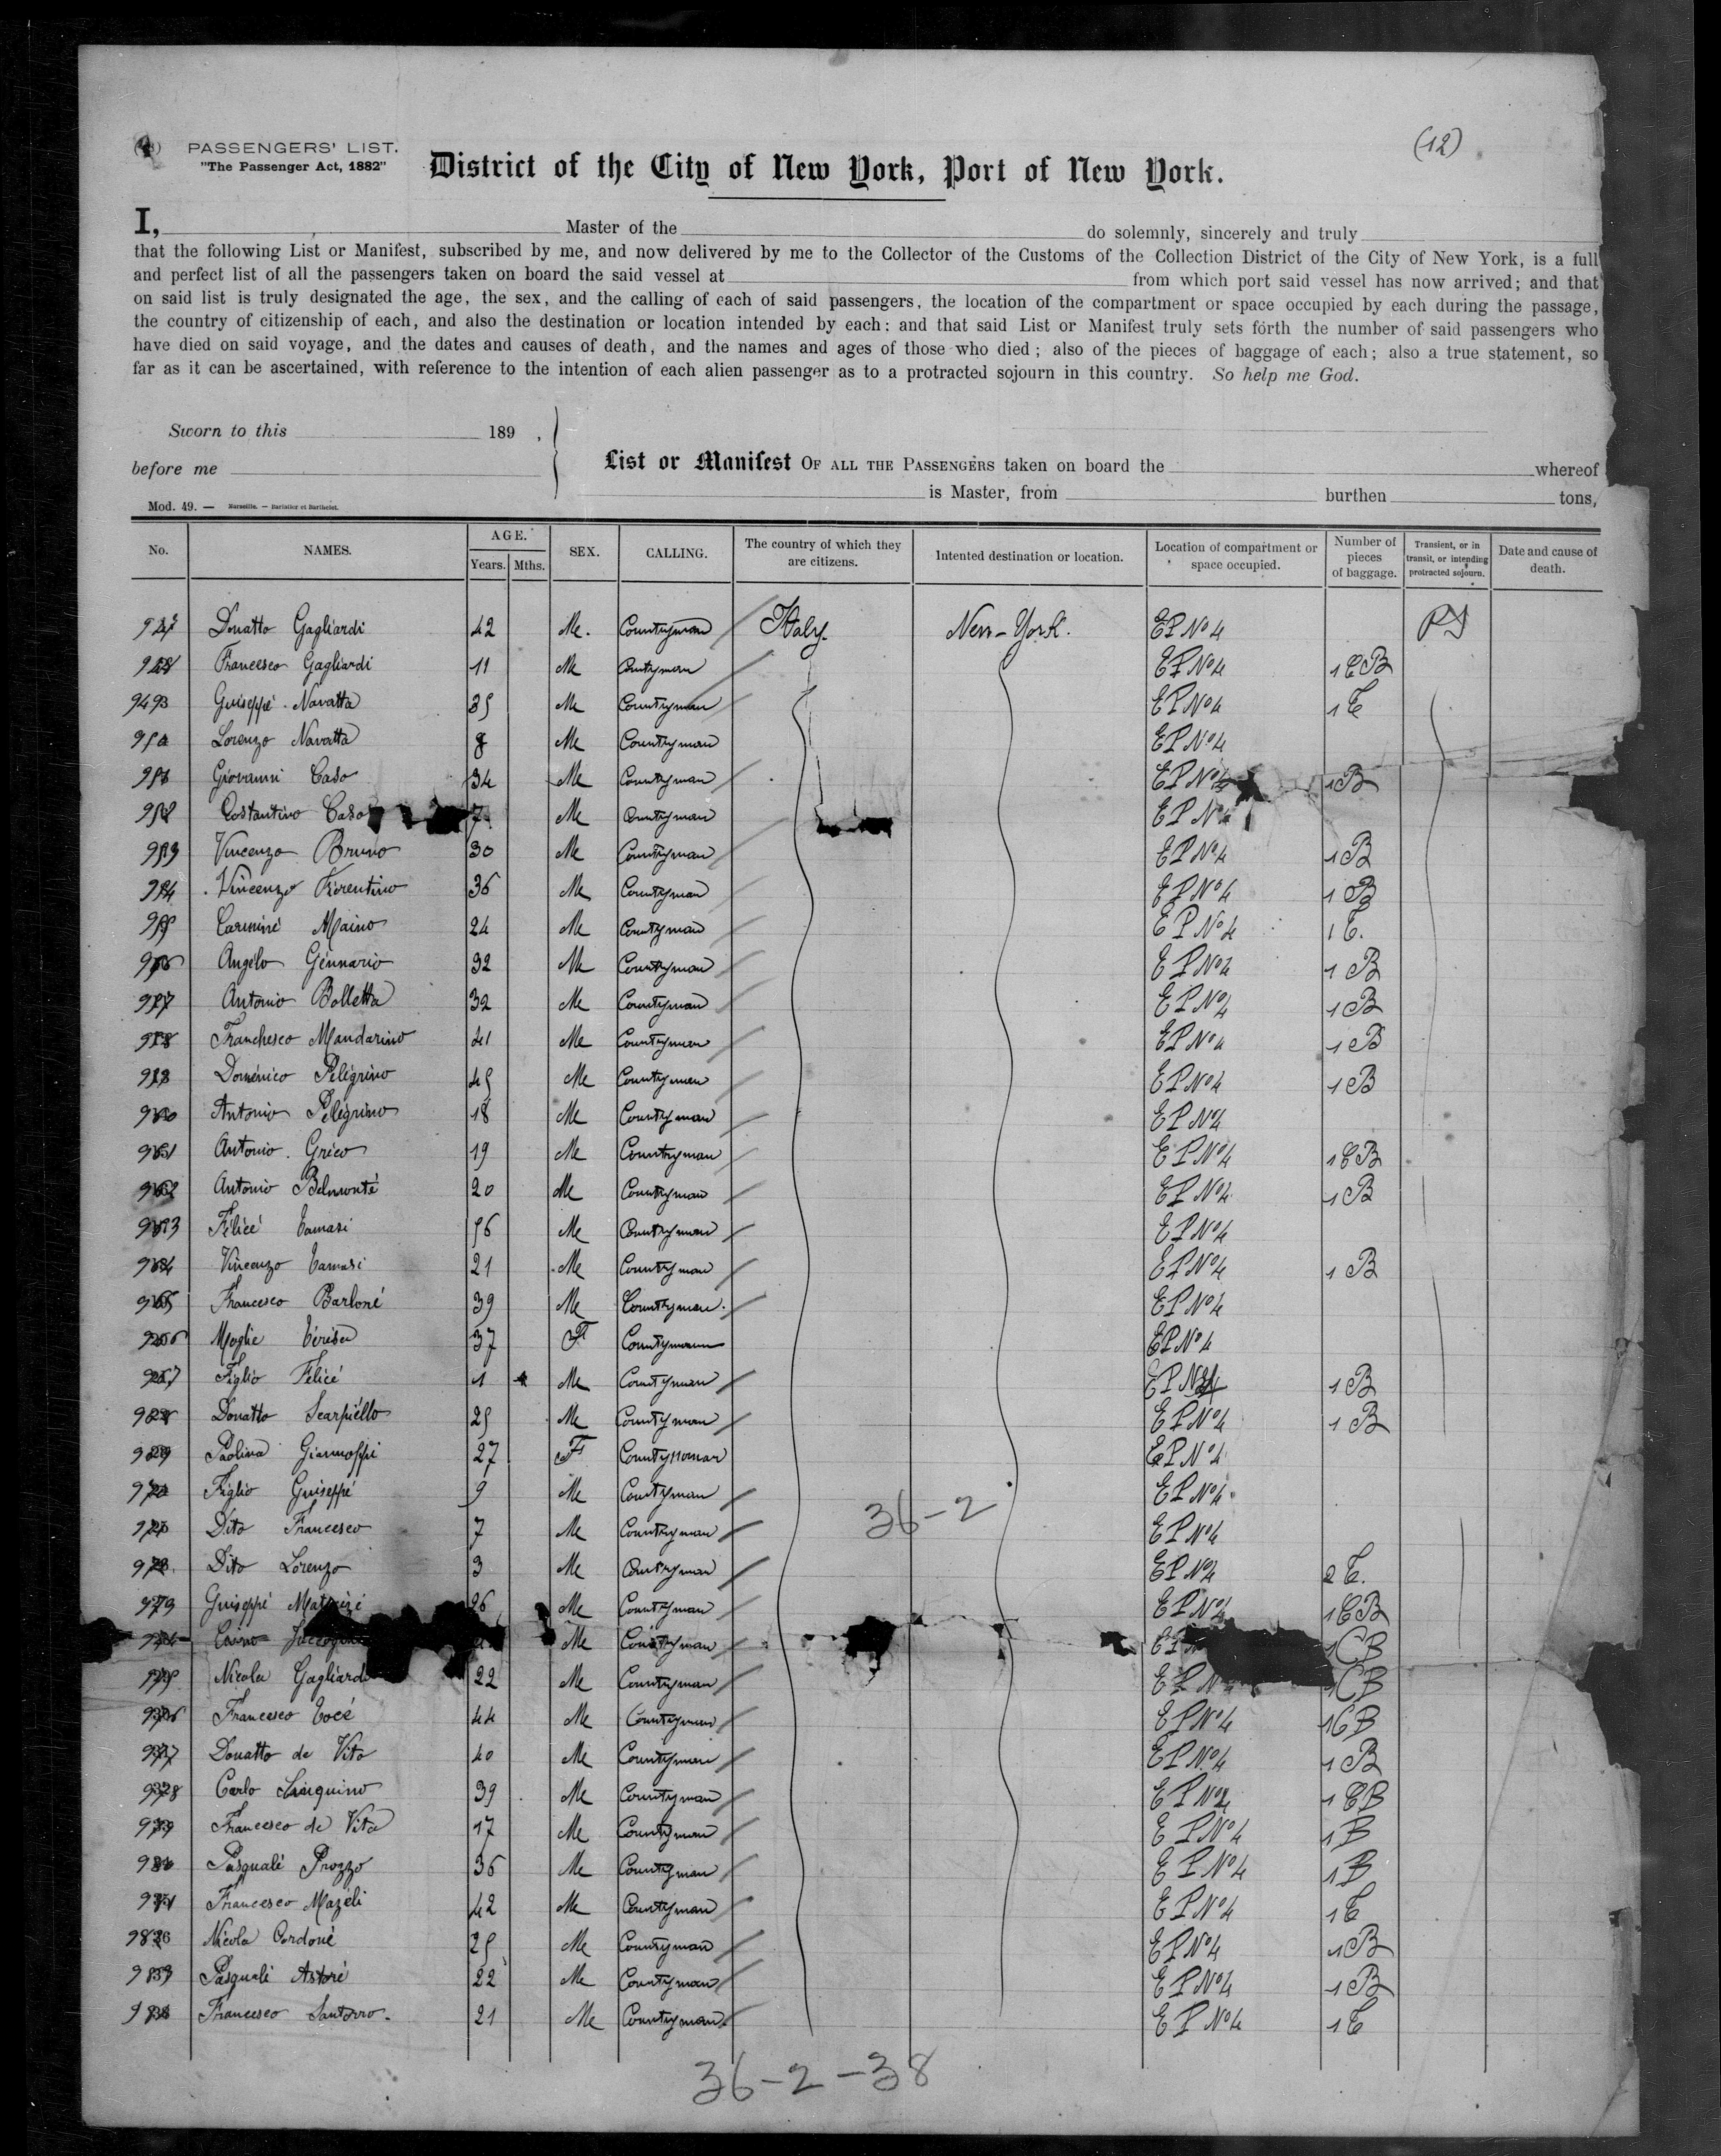 (12)
PASSENGERS' LIST.
"The Passenger Act, 1882"
District of the City of New York, Port of New York.
I, Master of the do solemnly, sincerely and truly
that the following List or Manifest, subscribed by me, and now delivered by me to the Collector of the Customs of the Collection District of the City of New York, is a full
and perfect list of all the passengers taken on board the said vessel at from which port said vessel has now arrived; and that
on said list is truly designated the age, the sex, and the calling of each of said passengers, the location of the compartment or space occupied by each during the passage,
the country of citizenship of each, and also the destination or location intended by each: and that said List or Manifest truly sets forth the number of said passengers who
have died on said voyage, and the dates and causes of death, and the names and ages of those who died; also of the pieces of baggage of each; also a true statement, so
far as it can be ascertained, with reference to the intention of each alien passenger as to a protracted sojourn in this country. So help me God.
Sworn to this 189 ,
before me
List or Manifest OF ALL THE PASSENGERS taken on board the whereof
is Master, from burthen tons,
Mod. 49. — Marseille. — Barlatier et Barthelet.
No. NAMES. AGE. Years. Mths. SEX. CALLING. The country of which they are citizens. Intented destination or location. Location of compartment or space occupied. Number of pieces of baggage. Transient, or in transit, or intending protracted sojourn. Date and cause of death.
Donatto Gagliardi 42 Me. Countryman Italy. New-York. EP No 4 PS
Francesco Gagliardi 11 Me Countryman EP No 4 1 CB
Guiseppé Navatta 35 Me Countryman EP No 4 1 C
Lorenzo Navatta 8 Me Countryman EP No 4
Giovanni Caso 34 Me Countryman EP No 4 1 B
Costantino Caso 7 Me Countryman EP No
Vincenzo Bruno 30 Me Countryman EP No 4 1 B
Vincenzo Fiorentino 36 Me Countryman EP No 4 1 B
Carminé Maino 24 Me Countryman EP No 4 1 C.
Angélo Génnario 32 Me Countryman EP No 4 1 B
Antonio Bolletta 32 Me Countryman EP No 4 1 B
Franchesco Mandarino 41 Me Countryman EP No 4 1 B
Doménico Pélégrino 45 Me Countryman EP No 4 1 B
Antonio Pélégrino 18 Me Countryman EP No 4
Antonio Griéco 19 Me Countryman EP No 4 1 CB
Antonio Belmonté 20 Me Countryman EP No 4 1 B
Félicé Tamasi 56 Me Countryman EP No 4
Vincenzo Tamasi 21 Me Countryman EP No 4 1 B
Francesco Barloné 39 Me Countryman. EP No 4
Moglie Térésa 37 F EP No 4
Figlio Félicé 1 Me Countryman EP No 4 1 B
Donatto Scarpiéllo 25 Me Countryman EP No 4 1 B
Paolina 27 F EP No 4
Figlio Guiseppé 9 Me Countryman EP No 4
Dito Francesco 7 Me Countryman 36-2 EP No 4
Dito Lorenzo 3 Me Countryman EP No 4 2 C.
Guiseppé 26 Me Countryman EP No 4 1 CB
Me Countryman EP 1 CB
Nicola Gagliardi 22 Me Countryman EP No 1 CB
Francesco Tocé 44 Me Countryman EP No 4 1 CB
Donatto de Vito 40 Me Countryman EP No 4 1 B
Carlo 39 Me Countryman EP No 4 1 CB
Francesco de Vita 17 Me Countryman EP No 4 1 B
Pasqualé Prozzo 36 Me Countryman EP No 4 1 B
Francesco Mazéli 42 Me Countryman EP No 4 1 C
Nicola Cordoné 25 Me Countryman EP No 4 1 B
Pasqualé Astoré 22 Me Countryman EP No 4 1 B
Francesco Santorro. 21 Me Countryman EP No 4 1 C
36-2-38